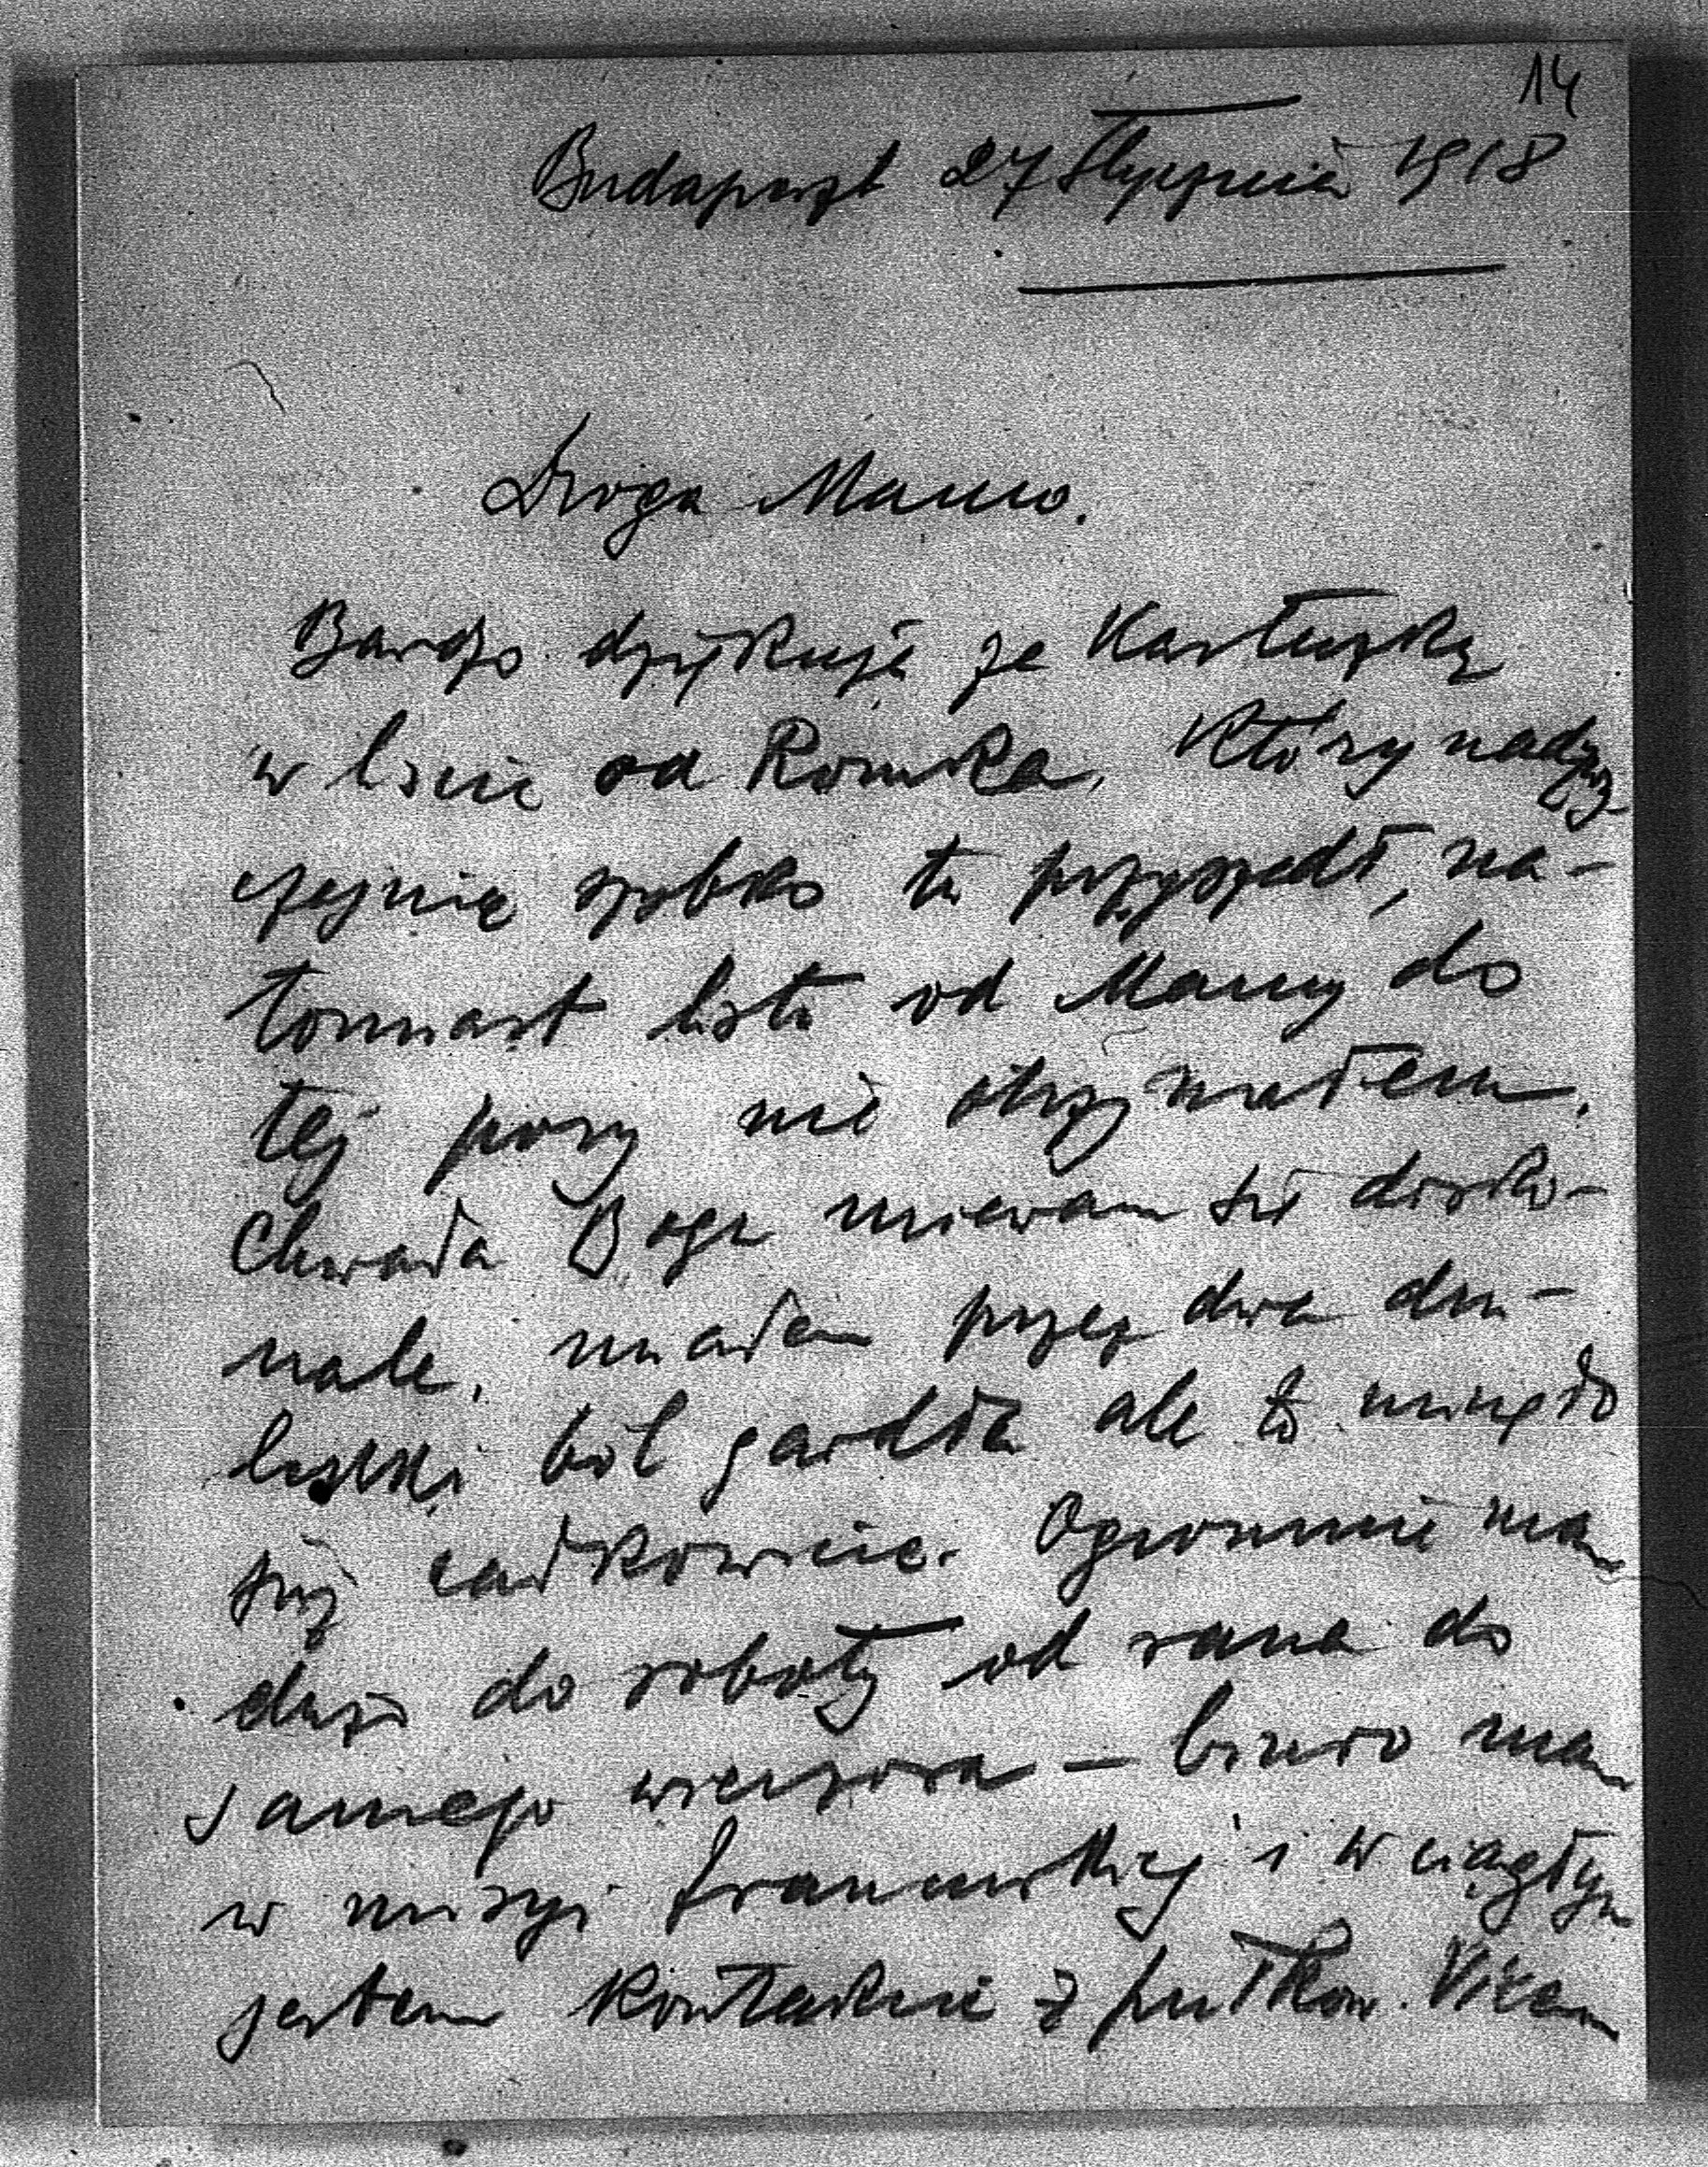 14
Budapeszt 27 Stycznia 1918
Droga Mamo.
Bardzo dziękuję za Kartuszkę
w liście od Romka, który nadzwy
czajnie szybko tu przyszedł, na-
tomiast listu od Mamy do
tej pory nie otrzymałem.
Chwała Bogu miewam się dosko-
nale, miałem przez dwa dni-
ból gardła ale to minęło
się całkowicie. Ogromnie mam
dużo do roboty od rana do
samego wieczora – biuro mam
w misyi francuskiej i w ciągłym
jestem kontakcie z pułkow. Vixem